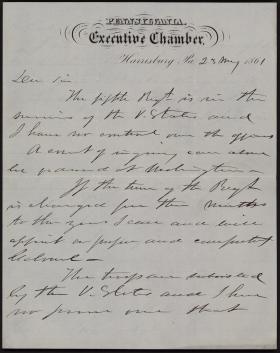 PENNSYLVANIA.
Executive Chamber,
Harrisburg, Pa. 23 May 1861
Dear Sir
The fifth Regt is in the
service of the U States and
I have no control over the officers
A court of inquiry can alone
be ordered at Washington -
If the time of the Regt
is changed from three months
to three years I can and will
appoint a proper and competent
Colonel -
The troops are subsisted
by the U. States and I have
no power over that